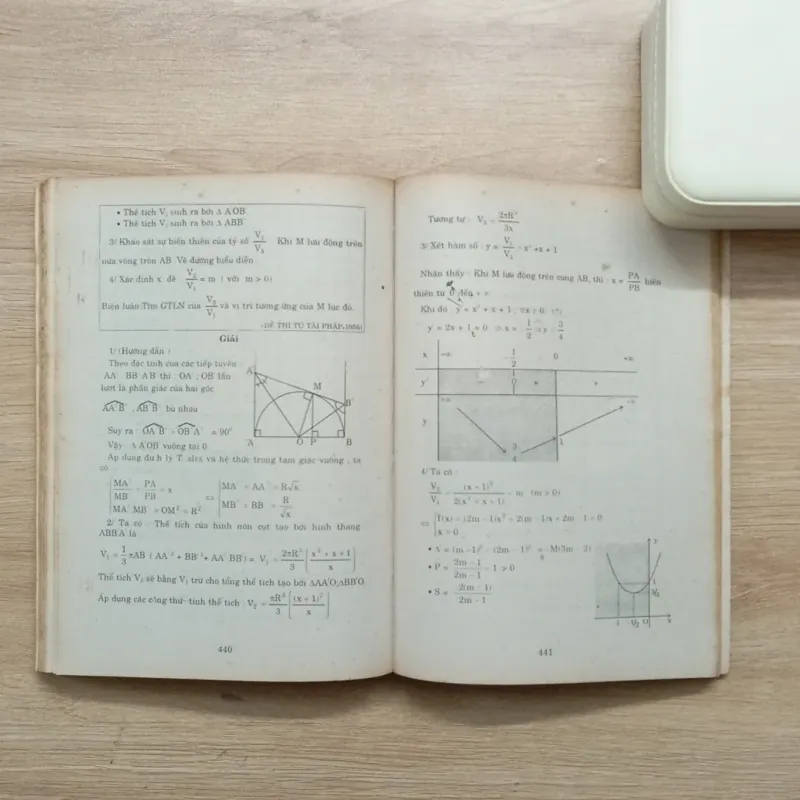 • Thể tích V₁ sinh ra bởi Δ A'OB'
• Thể tích V₂ sinh ra bởi Δ ABB'
3/ Khảo sát sự biến thiên của tỷ số V₁/V₃ Khi M lưu động trên
nửa vòng tròn AB Vẽ đường biểu diễn
4/ Xác định x để V₂/V₁ = m ( với m > 0)
Biện luận Tìm GTLN của V₂/V₁ và vị trí tương ứng của M lúc đó.
(ĐỀ THI TÚ TÀI PHÁP
Giải
1/ (Hướng dẫn )
Theo đặc tính của các tiếp tuyến
AA' BB' A'B' thì : OA' , OB' lần
lượt là phân giác của hai góc
AA'B' , AB'B bù nhau
Suy ra : OA'B' + OB'A' = 90°
Vậy Δ A'OB' vuông tại O
Áp dụng và hệ thức trong tam giác vuông , ta
có
MA/MB = PA/PB = x
MA' MB' = OM² = R²
⇔
MA' = AA' = R√x
MB' = BB' = R/√x
A'
M
B'
A
O
P
B
2/ Ta có Thể tích của hình nón cụt tạo bởi hình thang
ABB'A' là
V₁ = 1/3 πAB ( AA'² + BB'² + AA' BB') = V₁ = 2πR³/3 [x² + x + 1 / x]
Thể tích V₂ sẽ bằng V₁ trừ cho tổng thể tích tạo bởi ΔAA'O;ΔBB'O.
Áp dụng các công thức tính thể tích : V₂ = πR³/3 [(x + 1)² / x]
440
Tương tự : V₃ = 2πR³/3x
3/ Xét hàm số : y = V₁/V₃ = x² + x + 1
Nhận thấy : Khi M lưu động trên cung AB, thì : x = PA/PB biến
thiên từ 0 đến + ∞
Khi đó y = x² + x + 1 , ∀x ≥ 0 (*)
y' = 2x + 1 = 0 ⇒ x = - 1/2 ⇒ y = 3/4
x -∞ - 1/2 0 +∞
y' - 0 + +
y +∞ 3/4 1 +∞
4/ Ta có :
V₂/V₁ = (x + 1)² / 2(x² + x + 1) = m (m > 0)
⇔ f(x) = (2m - 1)x² + 2(m - 1)x + 2m - 1 = 0
x > 0
• P = 2m - 1 / 2m - 1 = 1 > 0
• S = - 2(m - 1) / 2m - 1
y
1
O
x
441